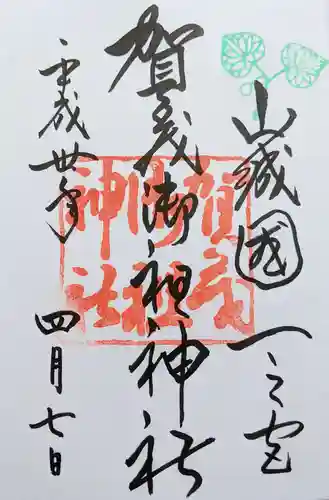 山城國一之宮
賀茂御祖神社
平成丗年
四月七日
賀茂
御祖
神社